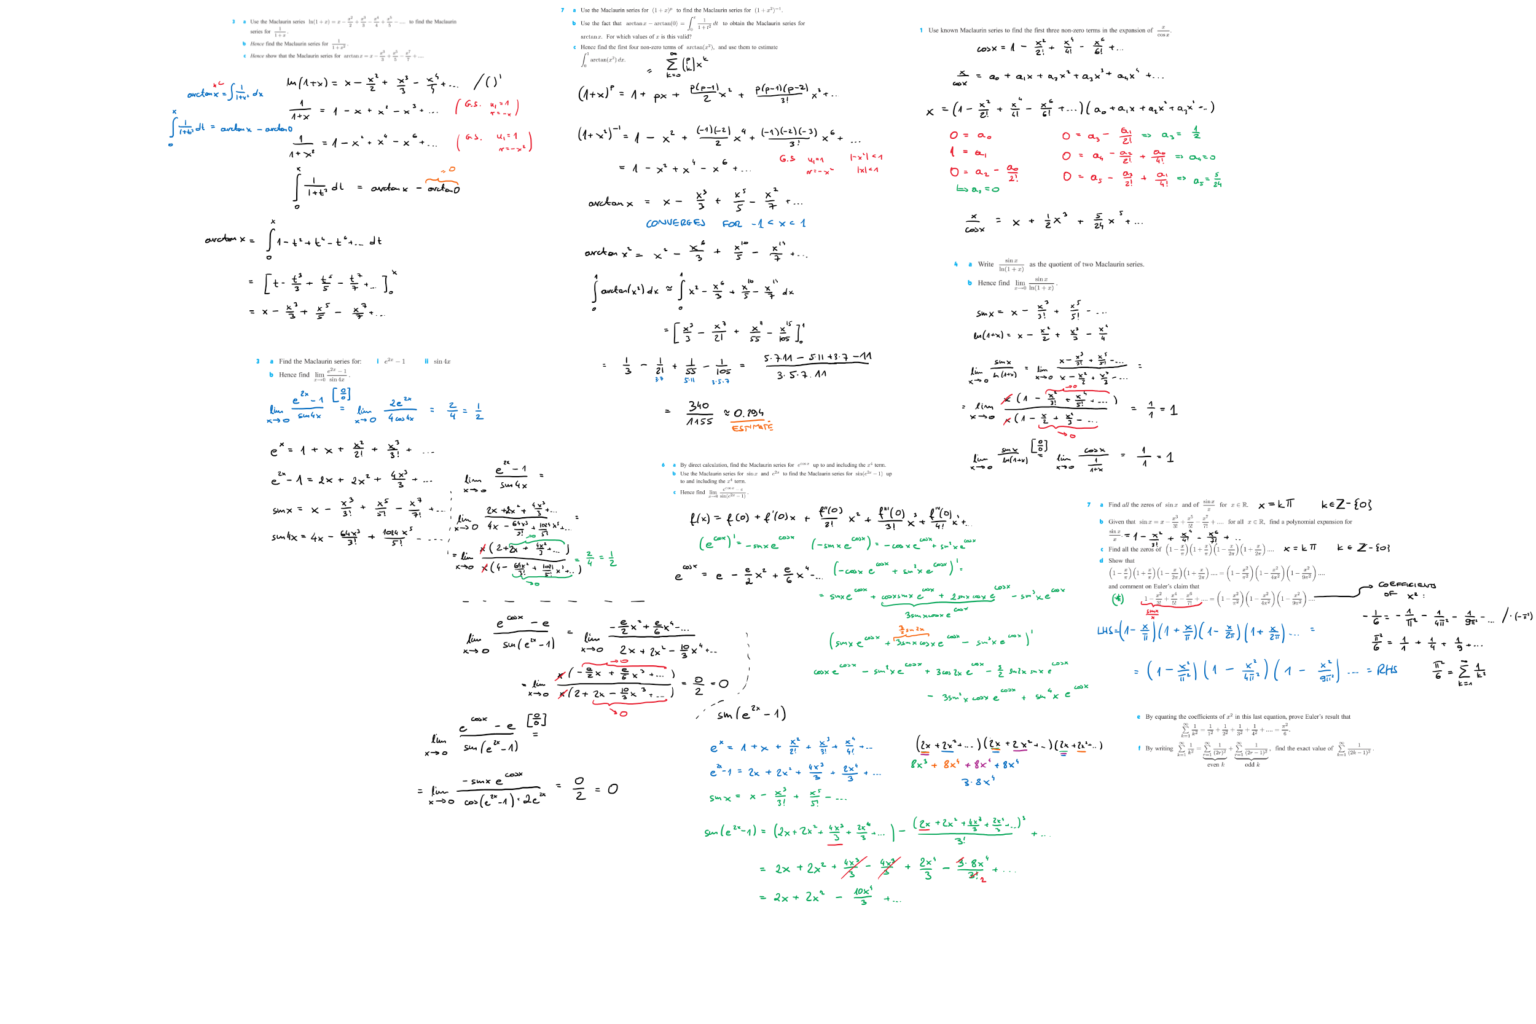 3 a Use the Maclaurin series ln(1+x) = x − x²/2 + x³/3 − x⁴/4 + x⁵/5 − .... to find the Maclaurin
series for 1/(1+x).
b Hence find the Maclaurin series for 1/(1+x²).
c Hence show that the Maclaurin series for arctan x = x − x³/3 + x⁵/5 − x⁷/7 + ....
arctan x = ∫ 1/(1+x²) dx
∫₀ˣ 1/(1+t²) dt = arctan x − arctan 0
ln(1+x) = x − x²/2 + x³/3 − x⁴/4 + ... /( )'
1/(1+x) = 1 − x + x² − x³ + ... (G.S. u₁=1 r=−x)
1/(1+x²) = 1 − x² + x⁴ − x⁶ + ... (G.S. u₁=1 r=−x²)
∫₀ˣ 1/(1+t²) dt = arctan x − arctan 0 =0
arctan x = ∫₀ˣ 1 − t² + t⁴ − t⁶ + ... dt
= [t − t³/3 + t⁵/5 − t⁷/7 + ...]₀ˣ
= x − x³/3 + x⁵/5 − x⁷/7 + ...
3 a Find the Maclaurin series for: i e²ˣ − 1 ii sin 4x
b Hence find lim x→0 (e²ˣ − 1)/(sin 4x).
lim x→0 (e²ˣ−1)/(sin4x) [0/0] = lim x→0 2e²ˣ/(4cos4x) = 2/4 = 1/2
eˣ = 1 + x + x²/2! + x³/3! + ...
e²ˣ − 1 = 2x + 2x² + 4x³/3 + ...
sin x = x − x³/3! + x⁵/5! − x⁷/7! + ...
sin4x = 4x − 64x³/3! + 1024x⁵/5! − ...
lim x→0 (e²ˣ−1)/(sin4x) =
lim x→0 (2x + 2x² + 4x³/3 + ...)/(4x − 64x³/3! + 1024x⁵/5! ...) =
= lim x→0 x(2 + 2x + 4x²/3 + ...)/x(4 − 64x²/3! + 1024/5! x⁴ ...) = 2/4 = 1/2
→0
lim x→0 (e^cosx − e)/(sin(e²ˣ−1)) = lim x→0 (−e/2 x² + e/6 x⁴ − ...)/(2x + 2x² − 10/3 x⁴ + ...)
= lim x→0 x(−e/2 x + e/6 x³ + ...)/x(2 + 2x − 10/3 x³ + ...) = 0/2 = 0
→0
lim x→0 (e^cosx − e)/(sin(e²ˣ−1)) [0/0] =
= lim x→0 (−sin x e^cosx)/(cos(e²ˣ−1)·2e²ˣ) = 0/2 = 0
7 a Use the Maclaurin series for (1+x)ᵖ to find the Maclaurin series for (1+x²)⁻¹.
b Use the fact that arctan x − arctan(0) = ∫₀ˣ 1/(1+t²) dt to obtain the Maclaurin series for
arctan x. For which values of x is this valid?
c Hence find the first four non-zero terms of arctan(x²), and use them to estimate
∫₀¹ arctan(x²) dx.
= Σ k=0 ∞ (p k) xᵏ
(1+x)ᵖ = 1 + px + p(p−1)/2 x² + p(p−1)(p−2)/3! x³ + ...
(1+x²)⁻¹ = 1 − x² + (−1)(−2)/2 x⁴ + (−1)(−2)(−3)/3! x⁶ + ...
= 1 − x² + x⁴ − x⁶ + ... G.S u₁=1 r=−x² |−x²|<1 |x|<1
arctan x = x − x³/3 + x⁵/5 − x⁷/7 + ...
CONVERGES FOR −1 < x < 1
arctan x² = x² − x⁶/3 + x¹⁰/5 − x¹⁴/7 + ...
∫₀¹ arctan(x²) dx ≈ ∫₀¹ x² − x⁶/3 + x¹⁰/5 − x¹⁴/7 dx
= [x³/3 − x⁷/21 + x¹¹/55 − x¹⁵/105]₀¹
= 1/3 − 1/21 + 1/55 − 1/105 = (5·7·11 − 5·11 + 3·7 − 11)/(3·5·7·11)
3·7 5·11 3·5·7
= 340/1155 ≈ 0.294
ESTIMATE
6 a By direct calculation, find the Maclaurin series for e^cos x up to and including the x⁴ term.
b Use the Maclaurin series for sin x and e²ˣ to find the Maclaurin series for sin(e²ˣ − 1) up
to and including the x⁴ term.
c Hence find lim x→0 (e^cos x − e)/(sin(e²ˣ − 1)).
f(x) = f(0) + f'(0)x + f''(0)/2! x² + f'''(0)/3! x³ + f''''(0)/4! x⁴...
(e^cosx)' = −sin x e^cosx (−sin x e^cosx)' = −cos x e^cosx + sin²x e^cosx
e^cosx = e − e/2 x² + e/6 x⁴ ... (−cos x e^cosx + sin²x e^cosx)' =
= sin x e^cosx + cos x sin x e^cosx + 2 sin x cos x e^cosx − sin³x e^cosx
3 sin x cos x e^cosx
3/2 sin 2x
(sin x e^cosx + 3 sin x cos x e^cosx − sin³x e^cosx)'
cos x e^cosx − sin²x e^cosx + 3cos2x e^cosx − 3/2 sin2x sin x e^cosx
− 3sin²x cos x e^cosx + sin⁴x e^cosx
sin(e²ˣ − 1)
eˣ = 1 + x + x²/2! + x³/3! + x⁴/4! + ...
e²ˣ−1 = 2x + 2x² + 4x³/3 + 2x⁴/3 + ...
sin x = x − x³/3! + x⁵/5! − ...
(2x + 2x² + ...)(2x + 2x² + ..)(2x + 2x² ...)
8x³ + 8x⁴ + 8x⁴ + 8x⁴
3·8x⁴
sin(e²ˣ−1) = (2x + 2x² + 4x³/3 + 2x⁴/3 + ...) − (2x + 2x² + 4x³/3 + 2x⁴/3 ...)³/3! + ...
= 2x + 2x² + 4x³/3 − 4x³/3 + 2x⁴/3 − 3·8x⁴/3! 2 + ...
= 2x + 2x² − 10x⁴/3 + ...
1 Use known Maclaurin series to find the first three non-zero terms in the expansion of x/cos x.
cos x = 1 − x²/2! + x⁴/4! − x⁶/6! + ...
x/cosx = a₀ + a₁x + a₂x² + a₃x³ + a₄x⁴ + ...
x = (1 − x²/2! + x⁴/4! − x⁶/6! + ...)(a₀ + a₁x + a₂x² + a₃x³ ...)
0 = a₀ 0 = a₃ − a₁/2! ⇒ a₃ = 1/2
1 = a₁ 0 = a₄ − a₂/2! + a₀/4! ⇒ a₄ = 0
0 = a₂ − a₀/2! 0 = a₅ − a₃/2! + a₁/4! ⇒ a₅ = 5/24
↳ a₂ = 0
x/cosx = x + 1/2 x³ + 5/24 x⁵ + ...
4 a Write sin x/ln(1+x) as the quotient of two Maclaurin series.
b Hence find lim x→0 sin x/ln(1+x).
sin x = x − x³/3! + x⁵/5! − ...
ln(1+x) = x − x²/2 + x³/3 − x⁴/4
lim x→0 sin x/ln(1+x) = lim x→0 (x − x³/3! + x⁵/5! − ...)/(x − x²/2 + x³/3 − ...) =
= lim x→0 x(1 − x²/3! + x⁴/5! + ...)/x(1 − x/2 + x²/3 − ...) = 1/1 = 1
→0
lim x→0 sin x/ln(1+x) [0/0] = lim x→0 cos x/(1/(1+x)) = 1/1 = 1
7 a Find all the zeros of sin x and of sin x/x for x ∈ ℝ. x = kπ k ∈ ℤ − {0}
b Given that sin x = x − x³/3! + x⁵/5! − x⁷/7! + .... for all x ∈ ℝ, find a polynomial expansion for
sin x/x. = 1 − x²/3! + x⁴/5! − x⁶/7! + ...
c Find all the zeros of (1 − x/π)(1 + x/π)(1 − x/2π)(1 + x/2π) .... x = kπ k ∈ ℤ − {0}
d Show that
(1 − x/π)(1 + x/π)(1 − x/2π)(1 + x/2π) .... = (1 − x²/π²)(1 − x²/4π²)(1 − x²/9π²) ....
and comment on Euler's claim that
(*) 1 − x²/3! + x⁴/5! − x⁶/7! + .... = (1 − x²/π²)(1 − x²/4π²)(1 − x²/9π²) ....
sin x/x
COEFFICIENTS
OF x²:
−1/6 = −1/π² − 1/4π² − 1/9π² − ... /·(−π²)
π²/6 = 1/1 + 1/4 + 1/9 + ...
π²/6 = Σ k=1 ∞ 1/k²
LHS = (1 − x/π)(1 + x/π)(1 − x/2π)(1 + x/2π) ... =
= (1 − x²/π²)(1 − x²/4π²)(1 − x²/9π²) .... = RHS
e By equating the coefficients of x² in this last equation, prove Euler's result that
Σ k=1 ∞ 1/k² = 1/1² + 1/2² + 1/3² + 1/4² + .... = π²/6.
f By writing Σ k=1 ∞ 1/k² = Σ k=1 ∞ 1/(2k)² + Σ k=1 ∞ 1/(2k−1)², find the exact value of Σ k=1 ∞ 1/(2k−1)².
even k odd k